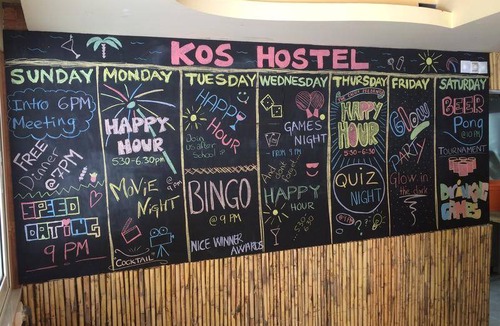 KOS HOSTEL
SUNDAY
Intro 6PM
Meeting
FREE
Dinner
@7PM
SPEED
DATING
9 PM
MONDAY
HAPPY
HOUR
5:30-6:30pm
MOVIE
NIGHT
COCKTAIL
TUESDAY
HAPPY
HOUR
Join
us after
School
BINGO
@9 PM
NICE WINNER
AWARDS
WEDNESDAY
GAMES
NIGHT
FROM 9 PM
And
HAPPY
HOUR
THURSDAY
HAPPY
HOUR
5:30-6:30
QUIZ
NIGHT
FRIDAY
GLOW
PARTY
Glow in
the dark
SATURDAY
BEER
Pong
TOURNAMENT
DRINKING
GAMES